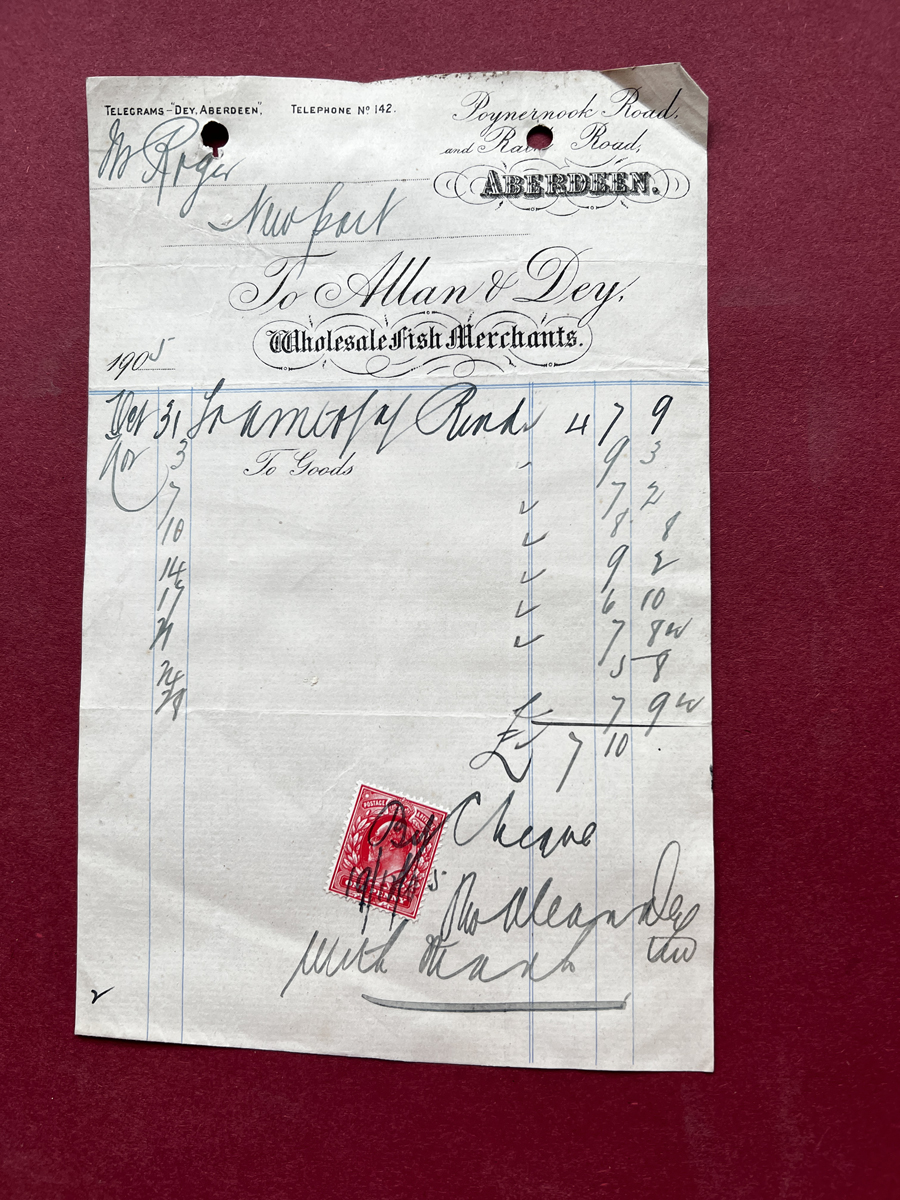 TELEGRAMS-"DEY, ABERDEEN", TELEPHONE Nº 142.
Poynernook Road,
and Road,
ABERDEEN.
Mr Roger
Newport
To Allan & Dey,
Wholesale Fish Merchants.
1905
Oct 31 To amt of Rend 4 7 9
Nov 3 To Goods 9 3
7 7 2
10 8 8
14 9 2
17 6 10
21 7 8
24 5 8
28 7 9
£ 7 10
POSTAGE
By Cheque
ONE PENNY
Dey
With Thanks
2